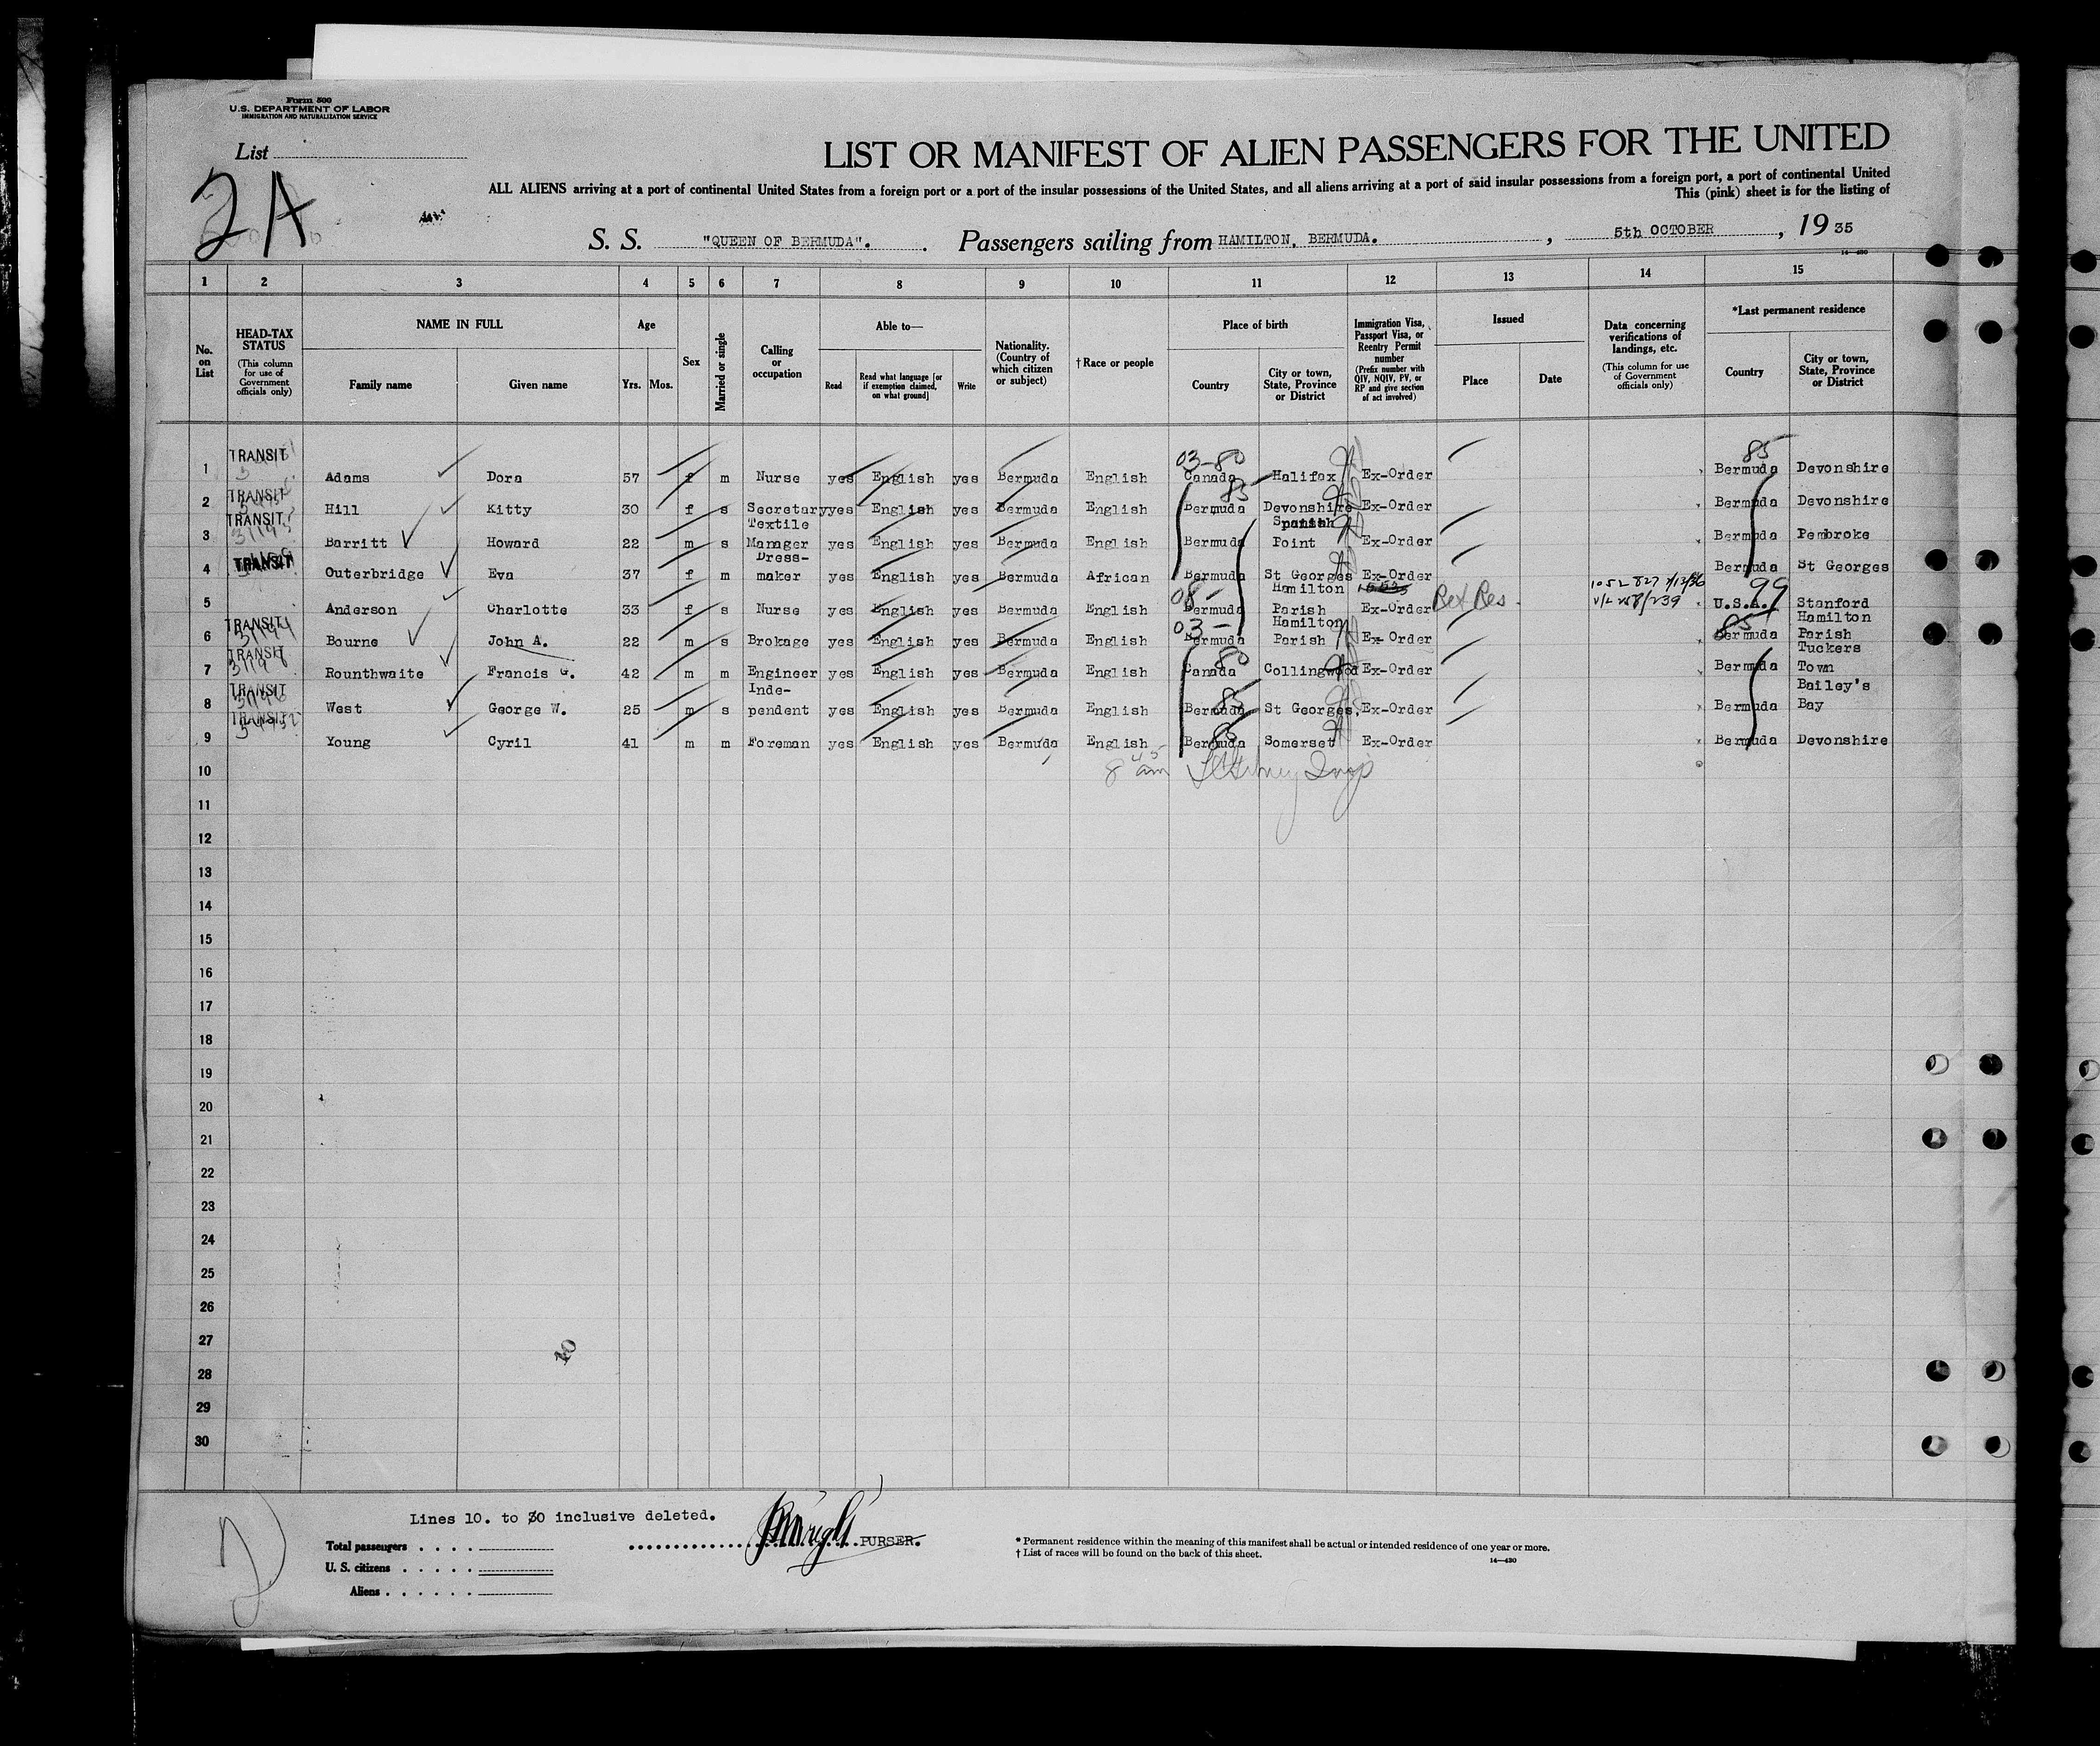 Form 500
U.S. DEPARTMENT OF LABOR
IMMIGRATION AND NATURALIZATION SERVICE
List
2A
LIST OR MANIFEST OF ALIEN PASSENGERS FOR THE UNITED
ALL ALIENS arriving at a port of continental United States from a foreign port or a port of the insular possessions of the United States, and all aliens arriving at a port of said insular possessions from a foreign port, a port of continental United
This (pink) sheet is for the listing of
S. S. "QUEEN OF BERMUDA". Passengers sailing from HAMILTON, BERMUDA. , 5th OCTOBER , 19 35
1 2 3 4 5 6 7 8 9 10 11 12 13 14 15
No. on List
HEAD-TAX STATUS (This column for use of Government officials only)
NAME IN FULL Family name Given name
Age Yrs. Mos.
Sex
Married or single
Calling or occupation
Able to— Read Read what language [or if exemption claimed, on what ground] Write
Nationality. (Country of which citizen or subject)
† Race or people
Place of birth Country City or town, State, Province or District
Immigration Visa, Passport Visa, or Reentry Permit number (Prefix number with QIV, NQIV, PV, or RP and give section of act involved)
Issued Place Date
Data concerning verifications of landings, etc. (This column for use of Government officials only)
*Last permanent residence Country City or town, State, Province or District
1 TRANSIT Adams Dora 57 f m Nurse yes English yes Bermuda English 03-80 Canada Halifax Ex-Order 85 Bermuda Devonshire
2 TRANSIT Hill Kitty 30 f s Secretary yes English yes Bermuda English 85 Bermuda Devonshire Ex-Order Bermuda Devonshire
3 TRANSIT Barritt Howard 22 m s Textile Manager yes English yes Bermuda English Bermuda Spanish Point Ex-Order Bermuda Pembroke
4 TRANSIT Outerbridge Eva 37 f m Dress-maker yes English yes Bermuda African Bermuda St Georges Ex-Order Bermuda St Georges
5 Anderson Charlotte 33 f s Nurse yes English yes Bermuda English 08- Bermuda Hamilton Parish Ex-Order Ret Res. 99 U.S.A. Stanford
6 TRANSIT Bourne John A. 22 m s Brokage yes English yes Bermuda English 03- Bermuda Hamilton Parish Ex-Order 85 Bermuda Hamilton Parish
7 TRANSIT Rounthwaite Francis G. 42 m m Engineer yes English yes Bermuda English 80 Canada Collingwood Ex-Order Bermuda Tuckers Town
8 TRANSIT West George W. 25 m s Inde-pendent yes English yes Bermuda English 85 Bermuda St Georges, Ex-Order Bermuda Bailey's Bay
9 TRANSIT Young Cyril 41 m m Foreman yes English yes Bermuda English 85 Bermuda Somerset Ex-Order Bermuda Devonshire
10 8 45 am
11
12
13
14
15
16
17
18
19
20
21
22
23
24
25
26
27
28
29
30
Lines 10. to 30 inclusive deleted.
Total passengers
U. S. citizens
Aliens
PURSER.
* Permanent residence within the meaning of this manifest shall be actual or intended residence of one year or more.
† List of races will be found on the back of this sheet.
14—430